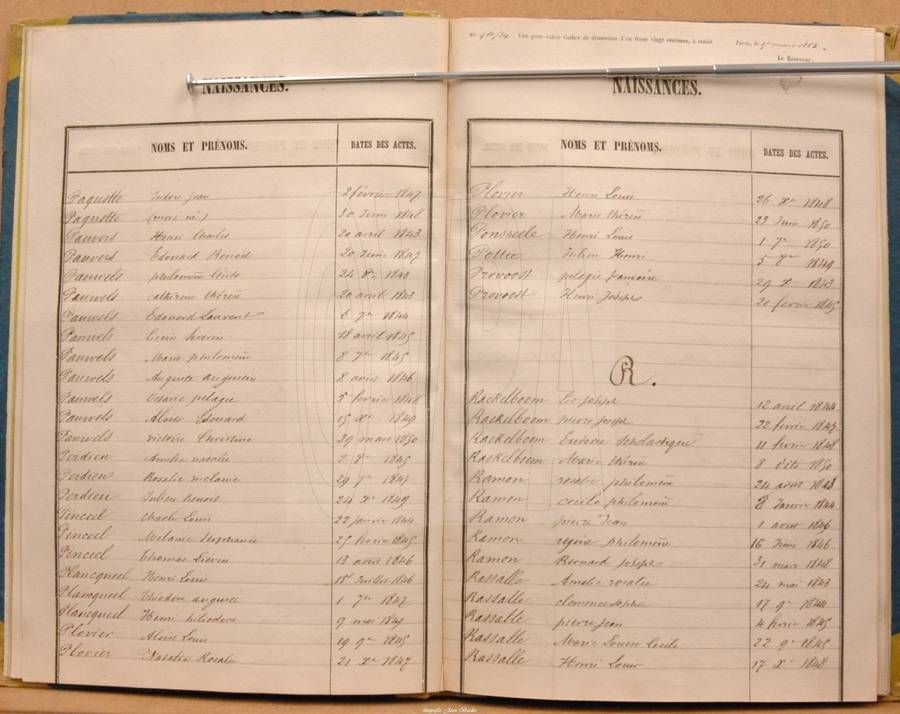 NAISSANCES.
NOMS ET PRÉNOMS. DATES DES ACTES.
Paquette Jean 2 février 1847
Paquette 30 Juin 1848
Pauvers Henri Charles 20 avril 1843
Pauvers Edouard Benoit 20 Juin 1847
Pauwels philomène 24
Pauwels catherine thérèse 20 avril 1843
Pauwels Edouard Laurent 6 7bre 1844
Pauwels Livin Severin 18 avril 1845
Pauwels Marie philomène 8 7bre 1845
Pauwels Auguste 8 1846
Pauwels Octavie pelagie 5 février 1848
Pauwels Aloïs Edouard 15 Xbre 1849
Pauwels victoire Christine 29 mars 1850
Perdieu Amelie 2 8bre 1845
Perdieu Rosalie melanie 29 7bre 1847
Perdieu Julien Benoit 24 Xbre 1849
Pinceel Charles Louis 22 janvier 1844
Pinceel Melanie 25 février 1845
Pinceel thomas Liévin 13 aout 1846
Plancqueel Henri Louis 15 Juillet 1846
Plancqueel théodore auguste 1 7bre 1847
Plancqueel Henri heliodore 9 mai 1849
Plovier Aloïs Louis 19 9bre 1845
Plovier Rosalie 21 Xbre 1847
Visé pour valoir timbre de dimension d'un franc vingt centimes, à crédit
Le Receveur,
NAISSANCES.
NOMS ET PRÉNOMS. DATES DES ACTES.
Plovier Henri Louis 26 Xbre 1848
Plovier Marie thérèse 23 Juin 1850
Ponseele Henri Louis 1 7bre 1850
Julien Henri 5 1849
Provoost pelagie françoise 29 X 1843
Provoost Henri Joseph 20 fevrier 1845
R.
Rackelboom Joseph 12 avril 1844
Rackelboom pierre Joseph 22 fevrier 1847
Rackelboom Eugénie 11 fevrier 1848
Rackelboom Marie thérèse 8 1850
Ramon rosalie philomène 24 août 1843
Ramon cecile philomène 8 Janvier 1844
Ramon pierre Jean 1 aout 1846
Ramon regina philomène 16 Juin 1846
Ramon Bernard joseph 31 mars 1848
Rassalle Amelie rosalie 24 mai 1843
Rassalle clemence sophie 17 9bre 1844
Rassalle pierre jean 4 fevrier 1845
Rassalle Marie Louise Cecile 22 9bre 1845
Rassalle Henri Louis 17 Xbre 1848